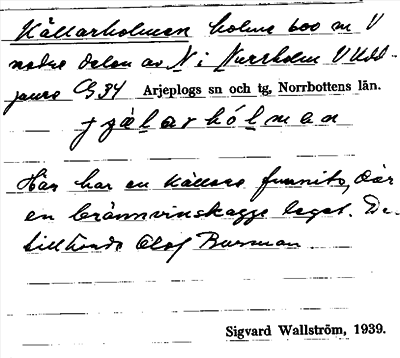 Källarholmen holme 600 m V
nedre delen av N i Norrholm V Udd-
jaure G34 Arjeplogs sn och tg, Norrbottens län.
Här har en källare funnits, där
en brännvinskagge legat. De
tillhörde Olof Burman
Sigvard Wallström, 1939.